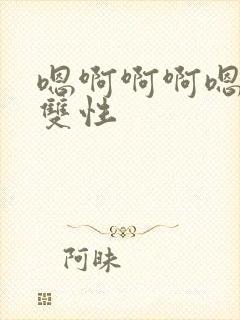 嗯啊啊啊嗯
雙性
阿昧